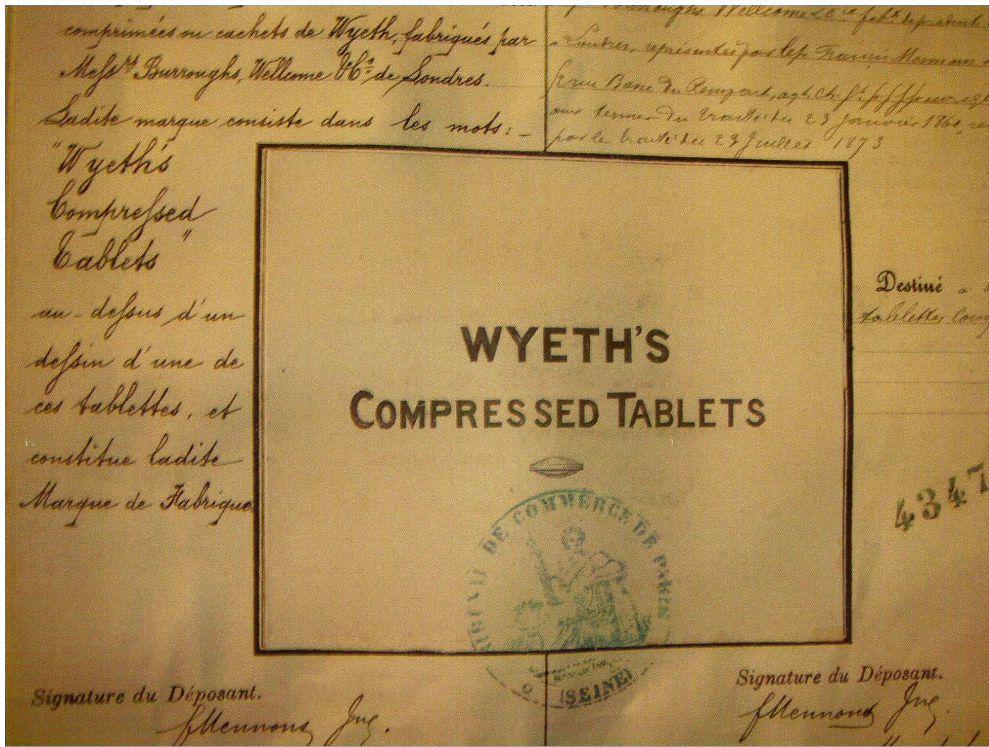 comprimées ou cachets de Wyeth, fabriqués par
Messrs Burroughs, Wellcome & Co. de Londres.
Ladite marque consiste dans les mots: -
"Wyeth's
Compressed
Tablets"
au-dessus d'un
dessin d'une de
ces tablettes, et
constitue ladite
Marque de Fabrique
Burroughs Wellcome
Londres, représentés par
aux termes du traité du 23 Janvier 1860,
par le traité du 23 Juillet 1873
WYETH'S
COMPRESSED TABLETS
TRIBUNAL DE COMMERCE DE PARIS
(SEINE)
Destiné a
tablettes
4347
Signature du Déposant.
Mennons
Signature du Déposant.
Mennons